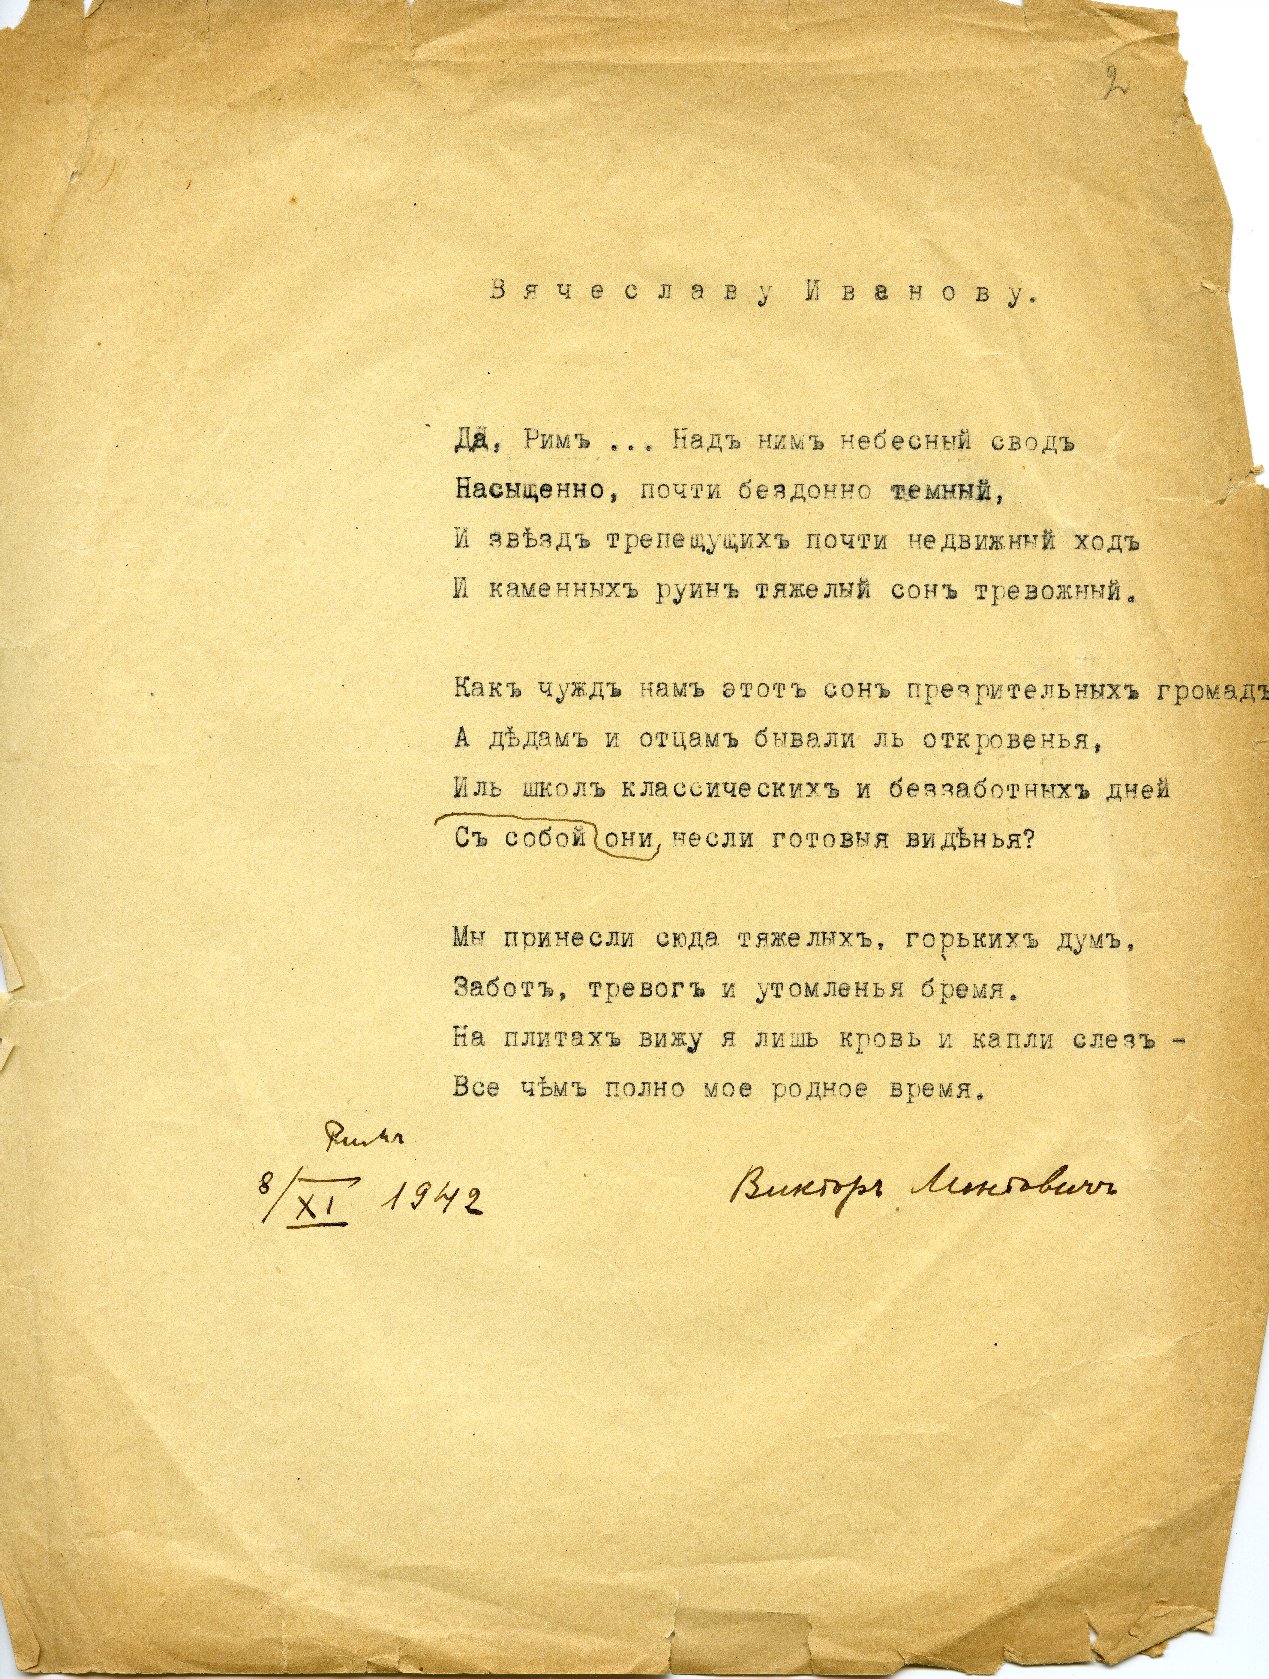 2
Вячеславу Иванову.
Да, Римъ ... Надъ нимъ небесный сводъ
Насыщенно, почти бездонно темный,
И звѣздъ трепещущихъ почти недвижный ходъ
И каменныхъ руинъ тяжелый сонъ тревожный.
Какъ чуждъ намъ этотъ сонъ презрительныхъ громадъ
А дѣдамъ и отцамъ бывали ль откровенья,
Иль школъ классическихъ и беззаботныхъ дней
Съ собой они, несли готовыя видѣнья?
Мы принесли сюда тяжелыхъ, горькихъ думъ,
Заботъ, тревогъ и утомленья бремя.
На плитахъ вижу я лишь кровь и капли слезъ -
Все чѣмъ полно мое родное время.
Римъ
8/XI 1942
Викторъ Монтовичъ